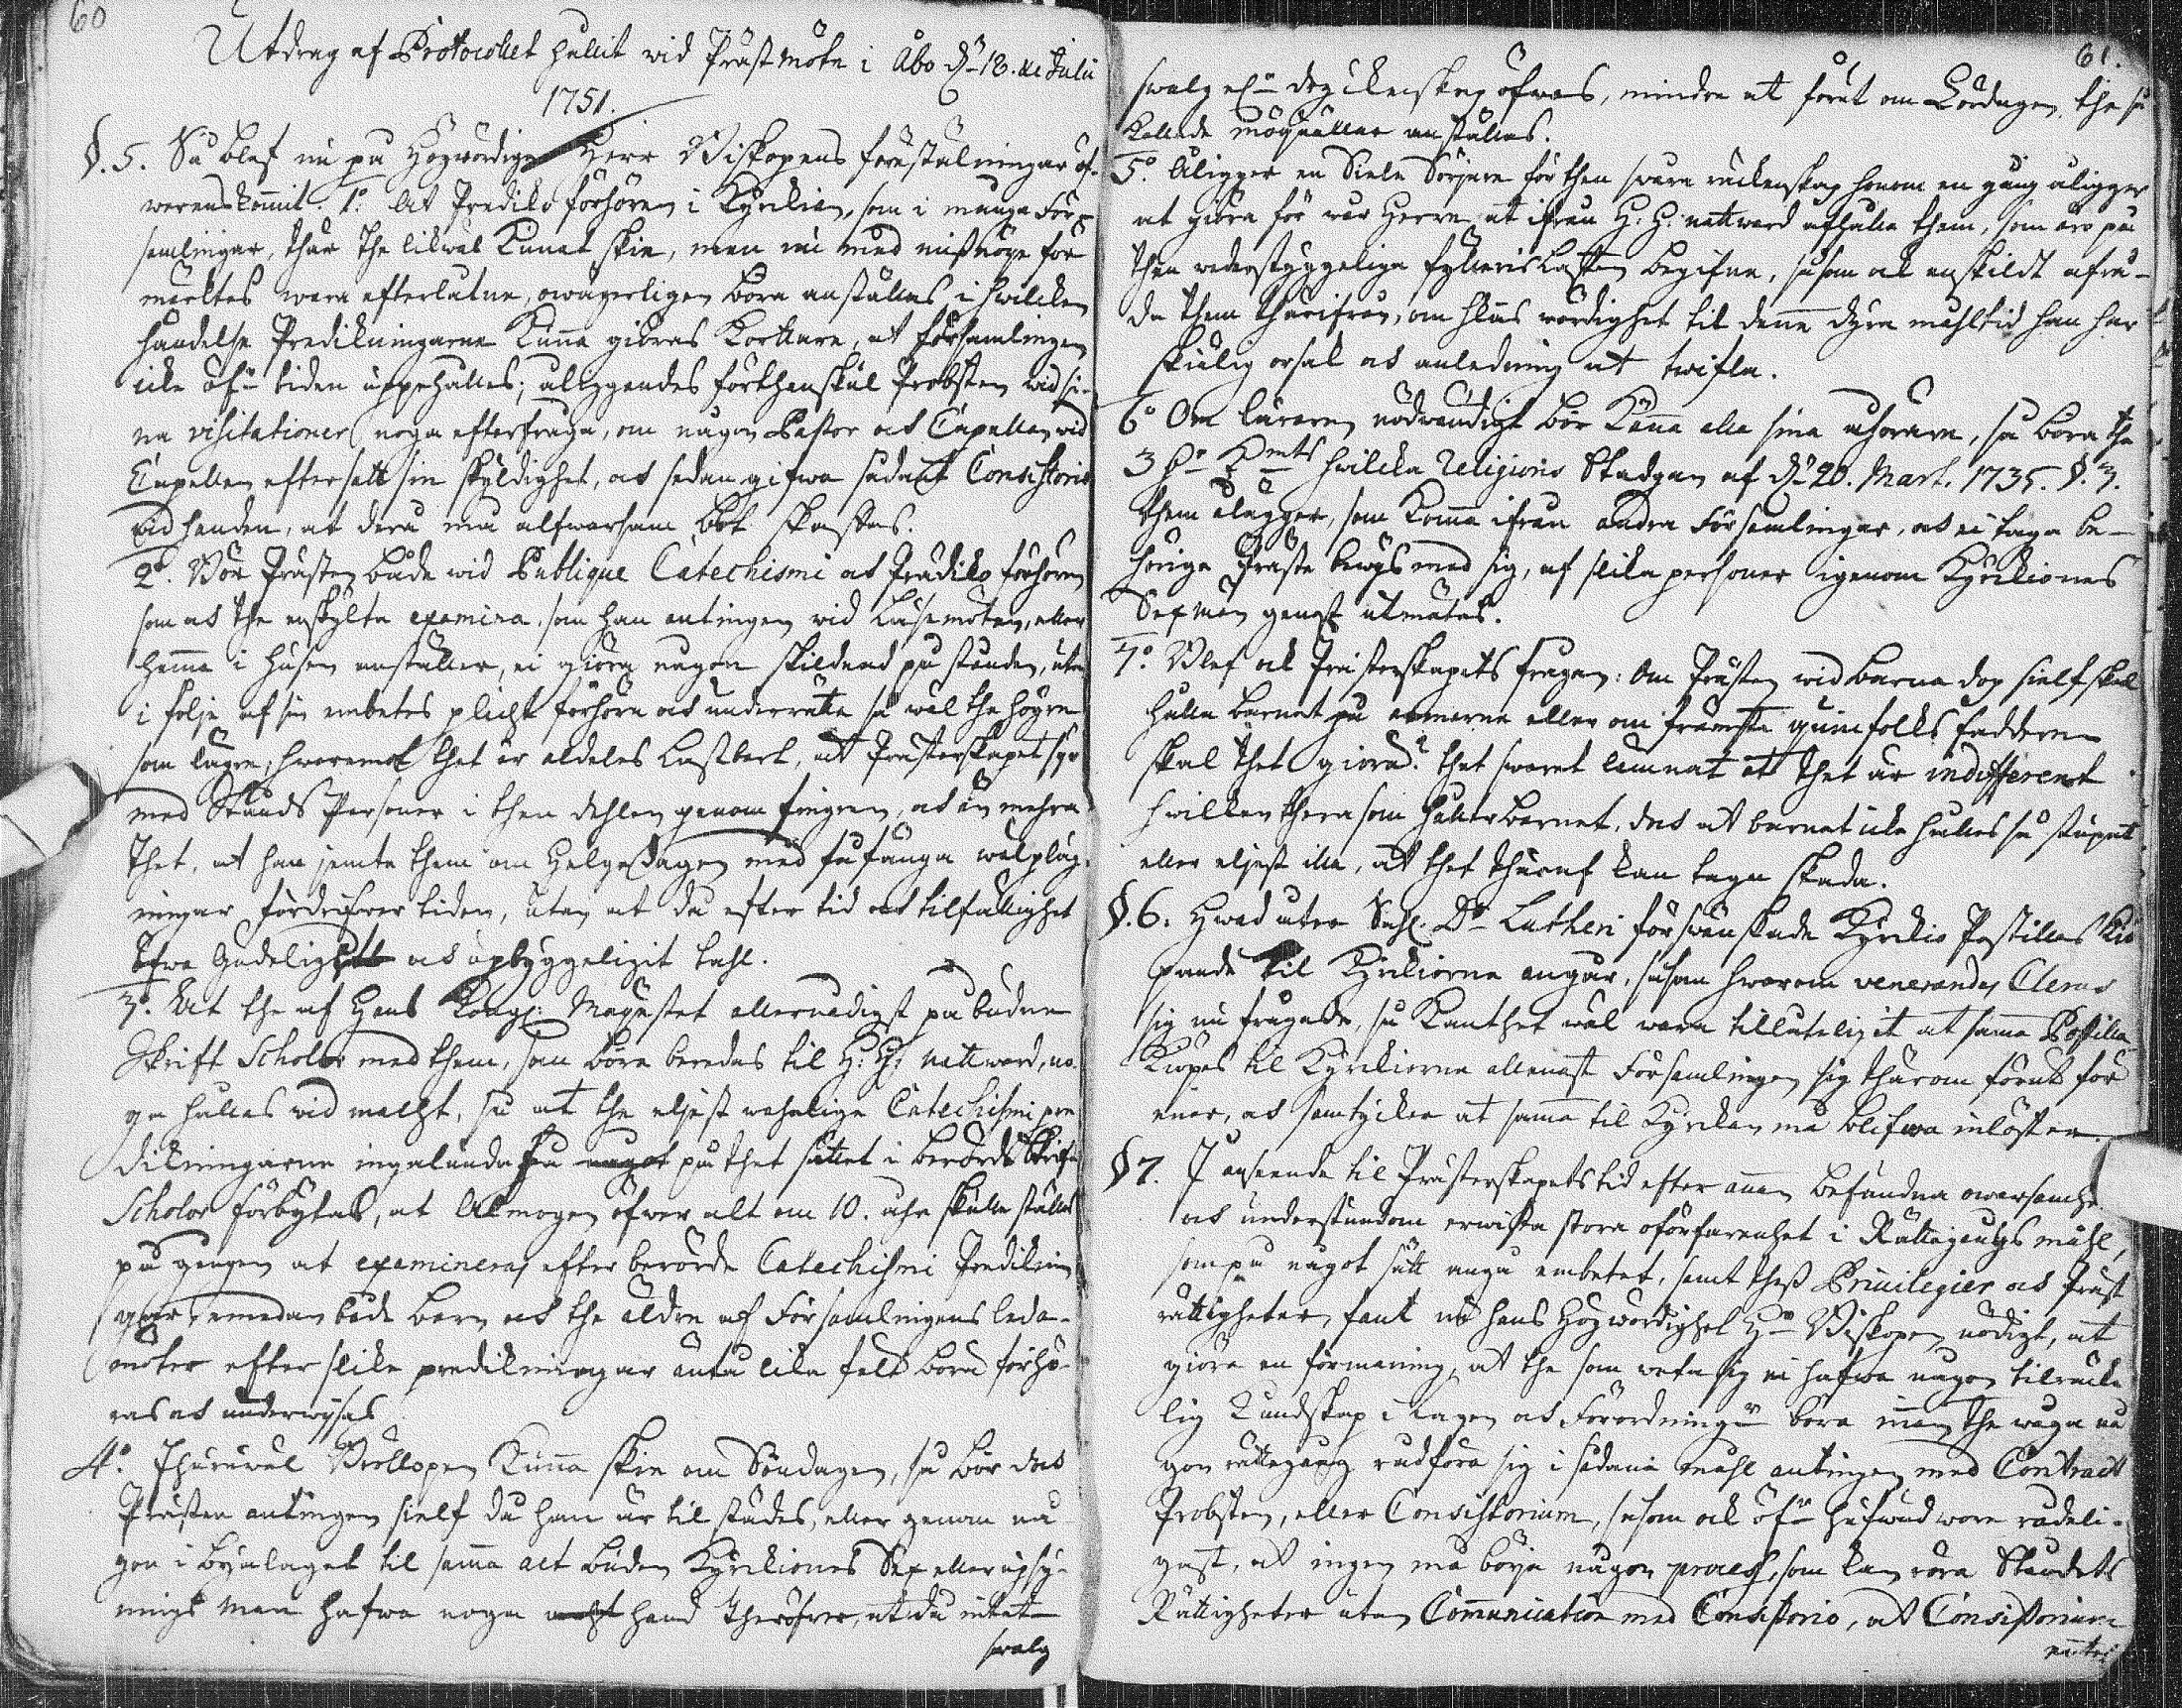 60
Utdrag af Protocollet hållit wid Prästmöte i Åbo d. 18. de Julii
1751.
§. 5. Så blef nu på Högwördige Herr Biskopens föreställningar öf-
werenskommit. 1:o At Prediko förhören i Kyrckian, som i många För-
samlingar, thär the likwäl kunnat skie, men nu med missnöje för
märktes wara efterlåtne, owägerligen böra anställas, i hwilcken
händelse Predikningarne kunna giöras kortare, at församlingen
icke öf:r tiden uppehålles; åliggandes förthenskul Probsten wid si-
na visitationer noga efterfråga, om någon Pastor och Capellan wid
Capellen eftersatt sin skyldighet, och sedan gifwa sådant Consistorio
wid handen, at derå må alfwarsam bot skaffas.
2:o. Bör Prästen både wid Publique Catechismi och Prädiko förhören
som och the enskylta examina, som han antingen wid Läsemöten, eller
hemma i husen anställer, ei giöra någon skildnad på stånden, utan
i följe af sin embetes plicht förhöra och underrätta så wäl the högre
som lägre, hwaremot thet är aldeles lastbart, at Prästerskapet ser
med Stånds Personer i then dehlen genom fingren, och än mehra
thet, at han jemte them om Helgedagen med fåfänga wälpläg-
ningar fördrifwer tiden, utan at då efter tid och tilfällighet
öfwa Gudeligit och upbyggeligit tahl.
3:o. At the af Hans Kongl: Mayestet allernådigst påbudne
Skrift Scholor med them, som böra beredas til H: H: Nattward, no-
ga hållas wid magt, så at the eljest wahnlige Catechismi pre
dikningarne ingalunda på thet sättet i berörde Skrift
Scholor förbytas, at Almogen öfwer alt om 10. åhr skulle ställas
på gången at examineras efter berörde Catechismi Prediknin
gar, emedan både barn och the äldre af Församlingens leda-
möter efter slika predikningar äntå lika fält böra förhö-
ras och underwijsas
4:o. Ehuruwäl Bröllopen kunna skie om Söndagen, så bör doch
Prästen antingen sielf då han är til städes, eller genom nå
gon i byalaget til samma act buden Kyrckiones Sex eller upsy-
nings Man hafwa noga hand theröfwer, at då intet
swalg
61.
swalg el:r dryckenskap öfwas, mindre at förut om Lördagen the så
kallade möijsällar anställas.
5:o. Åligger en Siela Sörjare för then swåra räkenskap honom en gång åligger
at giöra för wår Herre, at ifrån H: H: nattward afhålla them, som äro på
then wederstyggeliga fylleris Lasten begifne, såsom ock enskildt afrå-
da them thärifrån, om hwilcas wärdighet til denne dyra måhltid han har
skielig orsak och anledning at twifla.
6:o Om läraren nödwändigt bör känna alla sina åhörare, så böra the
3 D:r S:mt hwilcka Religions Stadgan af d: 20. Mart. 1735. §. 3.
them ålägger, som komma ifrån andra Församlingar, och ei taga be-
hörige Präste bewijs med sig, af slika personer igenom Kyrckiones
Sexmän genast utmätas.
7:o. Blef ock Presterskapets frågan: Om Prästen wid barna dop sielf skal
hålla barnet på armarna eller om främste quinfolks fadderen
skal thet giöra? thet swaret lemnat at thet är indifferent
hwilken thera som håller barnet, doch at barnet icke hålles så stupat
eller eljest illa, at thet thäraf kan taga skada.
§. 6. Hwad åter Sahl. D:r Lutheri förswänskade Kyrckio Postillas kiö
pande til Kyrckiorne angår, såsom hwarom venerandus Clerus
sig nu frågade, så kan thet wäl wara tillåteligit at samma Postilla
kiöpes til Kyrckiorne allenast Församlingen sig thärom förut för
enar, och samtycker at samma til Kyrckan må blifwa inlöst en.
§ 7. I anseende til Prästerskapets tid efter annan befundna owarsamhet
och understundom erwista stora oförfarenhet i Rättegångs måhl,
som på något sätt angå embetet, samt thess Privilegier och Präst
rättigheter, fant nu hans Högwördighet H:r Biskopen nödigt, at
giöra en förmaning, at the som weta sig ei hafwa någon tilräcke
lig kundskap i Lagen och Förordningar böra innan the wåga nå
gon rättegång rådföra sig i sådana måhl antingen med Contract
Probsten, eller Consistorium, såsom ock öf:r hufwud wore rådeli-
gast, at ingen må börja någon process, som kan röra Ståndets
Rättigheter utan Communication med Consistorio, at Consistorium